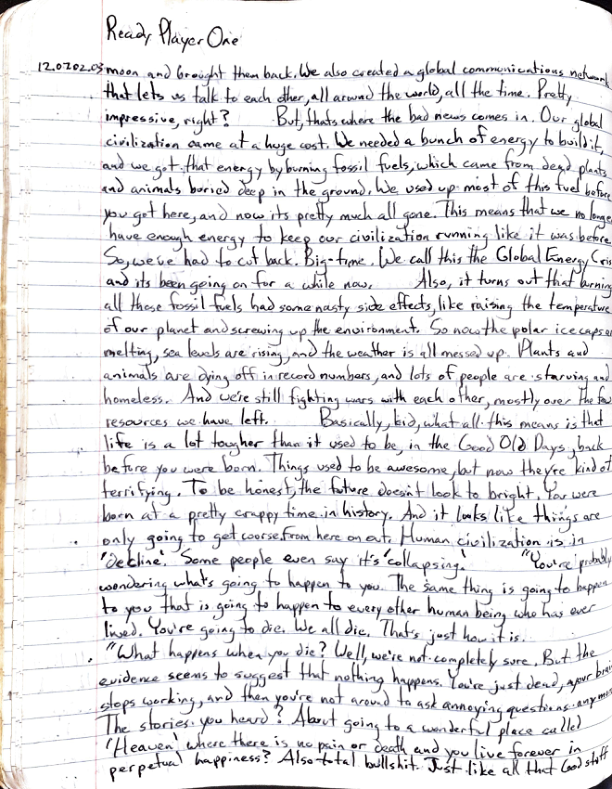 Ready Player One
12.0202.03 moon and brought them back. We also created a global communications network
that lets us talk to each other, all around the world, all the time. Pretty
impressive, right? But, thats where the bad news comes in. Our global
civilization came at a huge cost. We needed a bunch of energy to build it,
and we got that energy by burning fossil fuels, which came from dead plants
and animals buried deep in the ground. We used up most of this fuel before
you got here, and now its pretty much all gone. This means that we no longer
have enough energy to keep our civilization running like it was before.
So, we've had to cut back. Big-time. We call this the Global Energy Cris
and its been going on for a while now. Also, it turns out that burning
all those fossil fuels had some nasty side effects, like raising the temperature
of our planet and screwing up the environment. So now the polar ice caps are
melting, sea levels are rising, and the weather is all messed up. Plants and
animals are dying off in record numbers, and lots of people are starving and
homeless. And we're still fighting wars with each other, mostly over the few
resources we have left. Basically, kid, what all this means is that
life is a lot tougher than it used to be, in the Good Old Days, back
before you were born. Things used to be awesome, but now they're kind of
terrifying. To be honest, the future doesn't look to bright. You were
born at a pretty crappy time in history. And it looks like things are
only going to get worse from here on out. Human civilization is in
'decline'. Some people even say it's 'collapsing.' "You're probably
wondering what's going to happen to you. The same thing is going to happen
to you that is going to happen to every other human being who has ever
lived. You're going to die. We all die. That's just how it is.
"What happens when you die? Well, we're not completely sure. But the
evidence seems to suggest that nothing happens. You're just dead, your brain
stops working, and then you're not around to ask annoying questions anymore.
The stories you heard? About going to a wonderful place called
'Heaven' where there is no pain or death and you live forever in
perpetual happiness? Also total bullshit. Just like all that God stuff